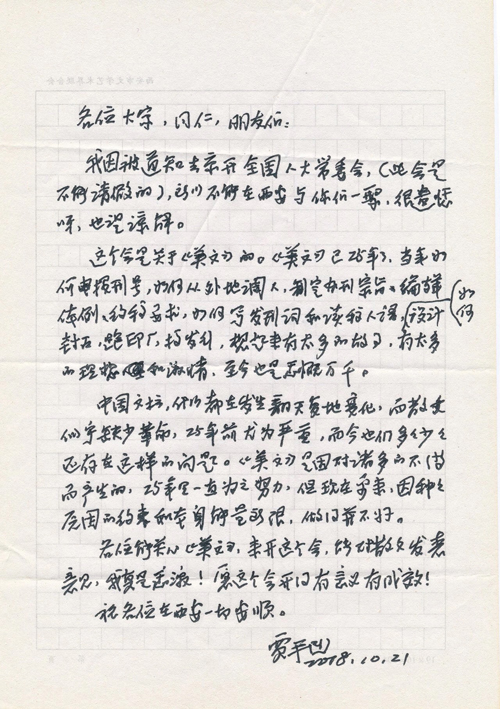 各位大家，同仁，朋友们：
我因被通知去京开全国人大常委会，(此会是
不能请假的)，所以不能在西安与你们一聚，很遗憾
呀，也望谅解。
这个会是关于《美文》的。《美文》已25年了，当年如
何申报刊号，如何从外地调人，制定办刊宗旨、编辑
体例、约稿，如何写发刊词和读稿人语，如何设计
封面，跑印厂，搞发行，想起来有太多的故事，有太多
的理想和激情，至今也是感慨万千。
中国文坛，何以都在发生翻天复地变化，而散文
们缺少革命，25年前尤为严重，而今也仍多多少少
还存在这样的问题。《美文》是因对诸多的不满
而产生的，25年里一直为之努力，但现在看来，因种种
原因的约束和本身能量所限，做得并不好。
各位能关心《美文》，来开这个会，能对散文发表
意见，我真是感激！愿这个会开得有意义有成效！
祝各位在西安一切安顺。
贾平凹
2018.10.21